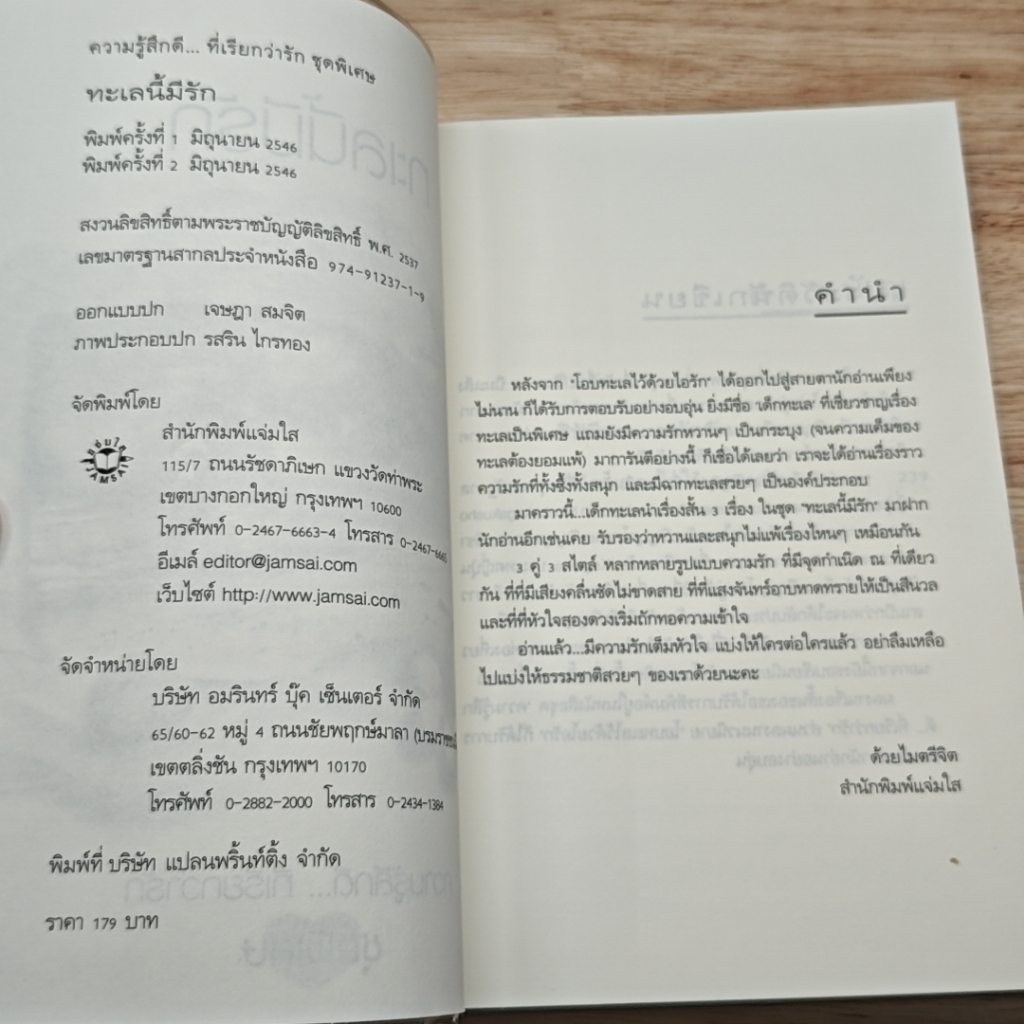 ความรู้สึกดี... ที่เรียกว่ารัก ชุดพิเศษ
ทะเลนี้มีรัก
พิมพ์ครั้งที่ 1 มิถุนายน 2546
พิมพ์ครั้งที่ 2 มิถุนายน 2546
สงวนลิขสิทธิ์ตามพระราชบัญญัติลิขสิทธิ์ พ.ศ. 2537
เลขมาตรฐานสากลประจำหนังสือ 974-91237-1-9
ออกแบบปก เจษฎา สมจิต
ภาพประกอบปก รสริน ไกรทอง
จัดพิมพ์โดย
สำนักพิมพ์แจ่มใส
115/7 ถนนรัชดาภิเษก แขวงวัดท่าพระ
เขตบางกอกใหญ่ กรุงเทพฯ 10600
โทรศัพท์ 0-2467-6663-4 โทรสาร
อีเมล์ editor@jamsai.com
เว็บไซต์ http://www.jamsai.com
จัดจำหน่ายโดย
บริษัท อมรินทร์ บุ๊ค เซ็นเตอร์ จำกัด
65/60-62 หมู่ 4 ถนนชัยพฤกษ์มาลา
เขตตลิ่งชัน กรุงเทพฯ 10170
โทรศัพท์ 0-2882-2000 โทรสาร 0-2434-1384
พิมพ์ที่ บริษัท แปลนพริ้นท์ติ้ง จำกัด
ราคา 179 บาท
คำนำ
หลังจาก "โอบทะเลไว้ด้วยไอรัก" ได้ออกไปสู่สายตานักอ่านเพียง
ไม่นาน ก็ได้รับการตอบรับอย่างอบอุ่น ยิ่งมีชื่อ 'เด็กทะเล' ที่เชี่ยวชาญเรื่อง
ทะเลเป็นพิเศษ แถมยังมีความรักหวานๆ เป็นกระบุง (จนความเค็มของ
ทะเลต้องยอมแพ้) มาการันตีอย่างนี้ ก็เชื่อได้เลยว่า เราจะได้อ่านเรื่องราว
ความรักที่ทั้งซึ้งทั้งสนุก และมีฉากทะเลสวยๆ เป็นองค์ประกอบ
มาคราวนี้...เด็กทะเลนำเรื่องสั้น 3 เรื่อง ในชุด "ทะเลนี้มีรัก" มาฝาก
นักอ่านอีกเช่นเคย รับรองว่าหวานและสนุกไม่แพ้เรื่องไหนๆ เหมือนกัน
3 คู่ 3 สไตล์ หลากหลายรูปแบบความรัก ที่มีจุดกำเนิด ณ ที่เดียว
กัน ที่ที่มีเสียงคลื่นซัดไม่ขาดสาย ที่ที่แสงจันทร์อาบหาดทรายให้เป็นสีนวล
และที่ที่หัวใจสองดวงเริ่มถักทอความเข้าใจ
อ่านแล้ว...มีความรักเต็มหัวใจ แบ่งให้ใครต่อใครแล้ว อย่าลืมเหลือ
ไปแบ่งให้ธรรมชาติสวยๆ ของเราด้วยนะคะ
ด้วยไมตรีจิต
สำนักพิมพ์แจ่มใส